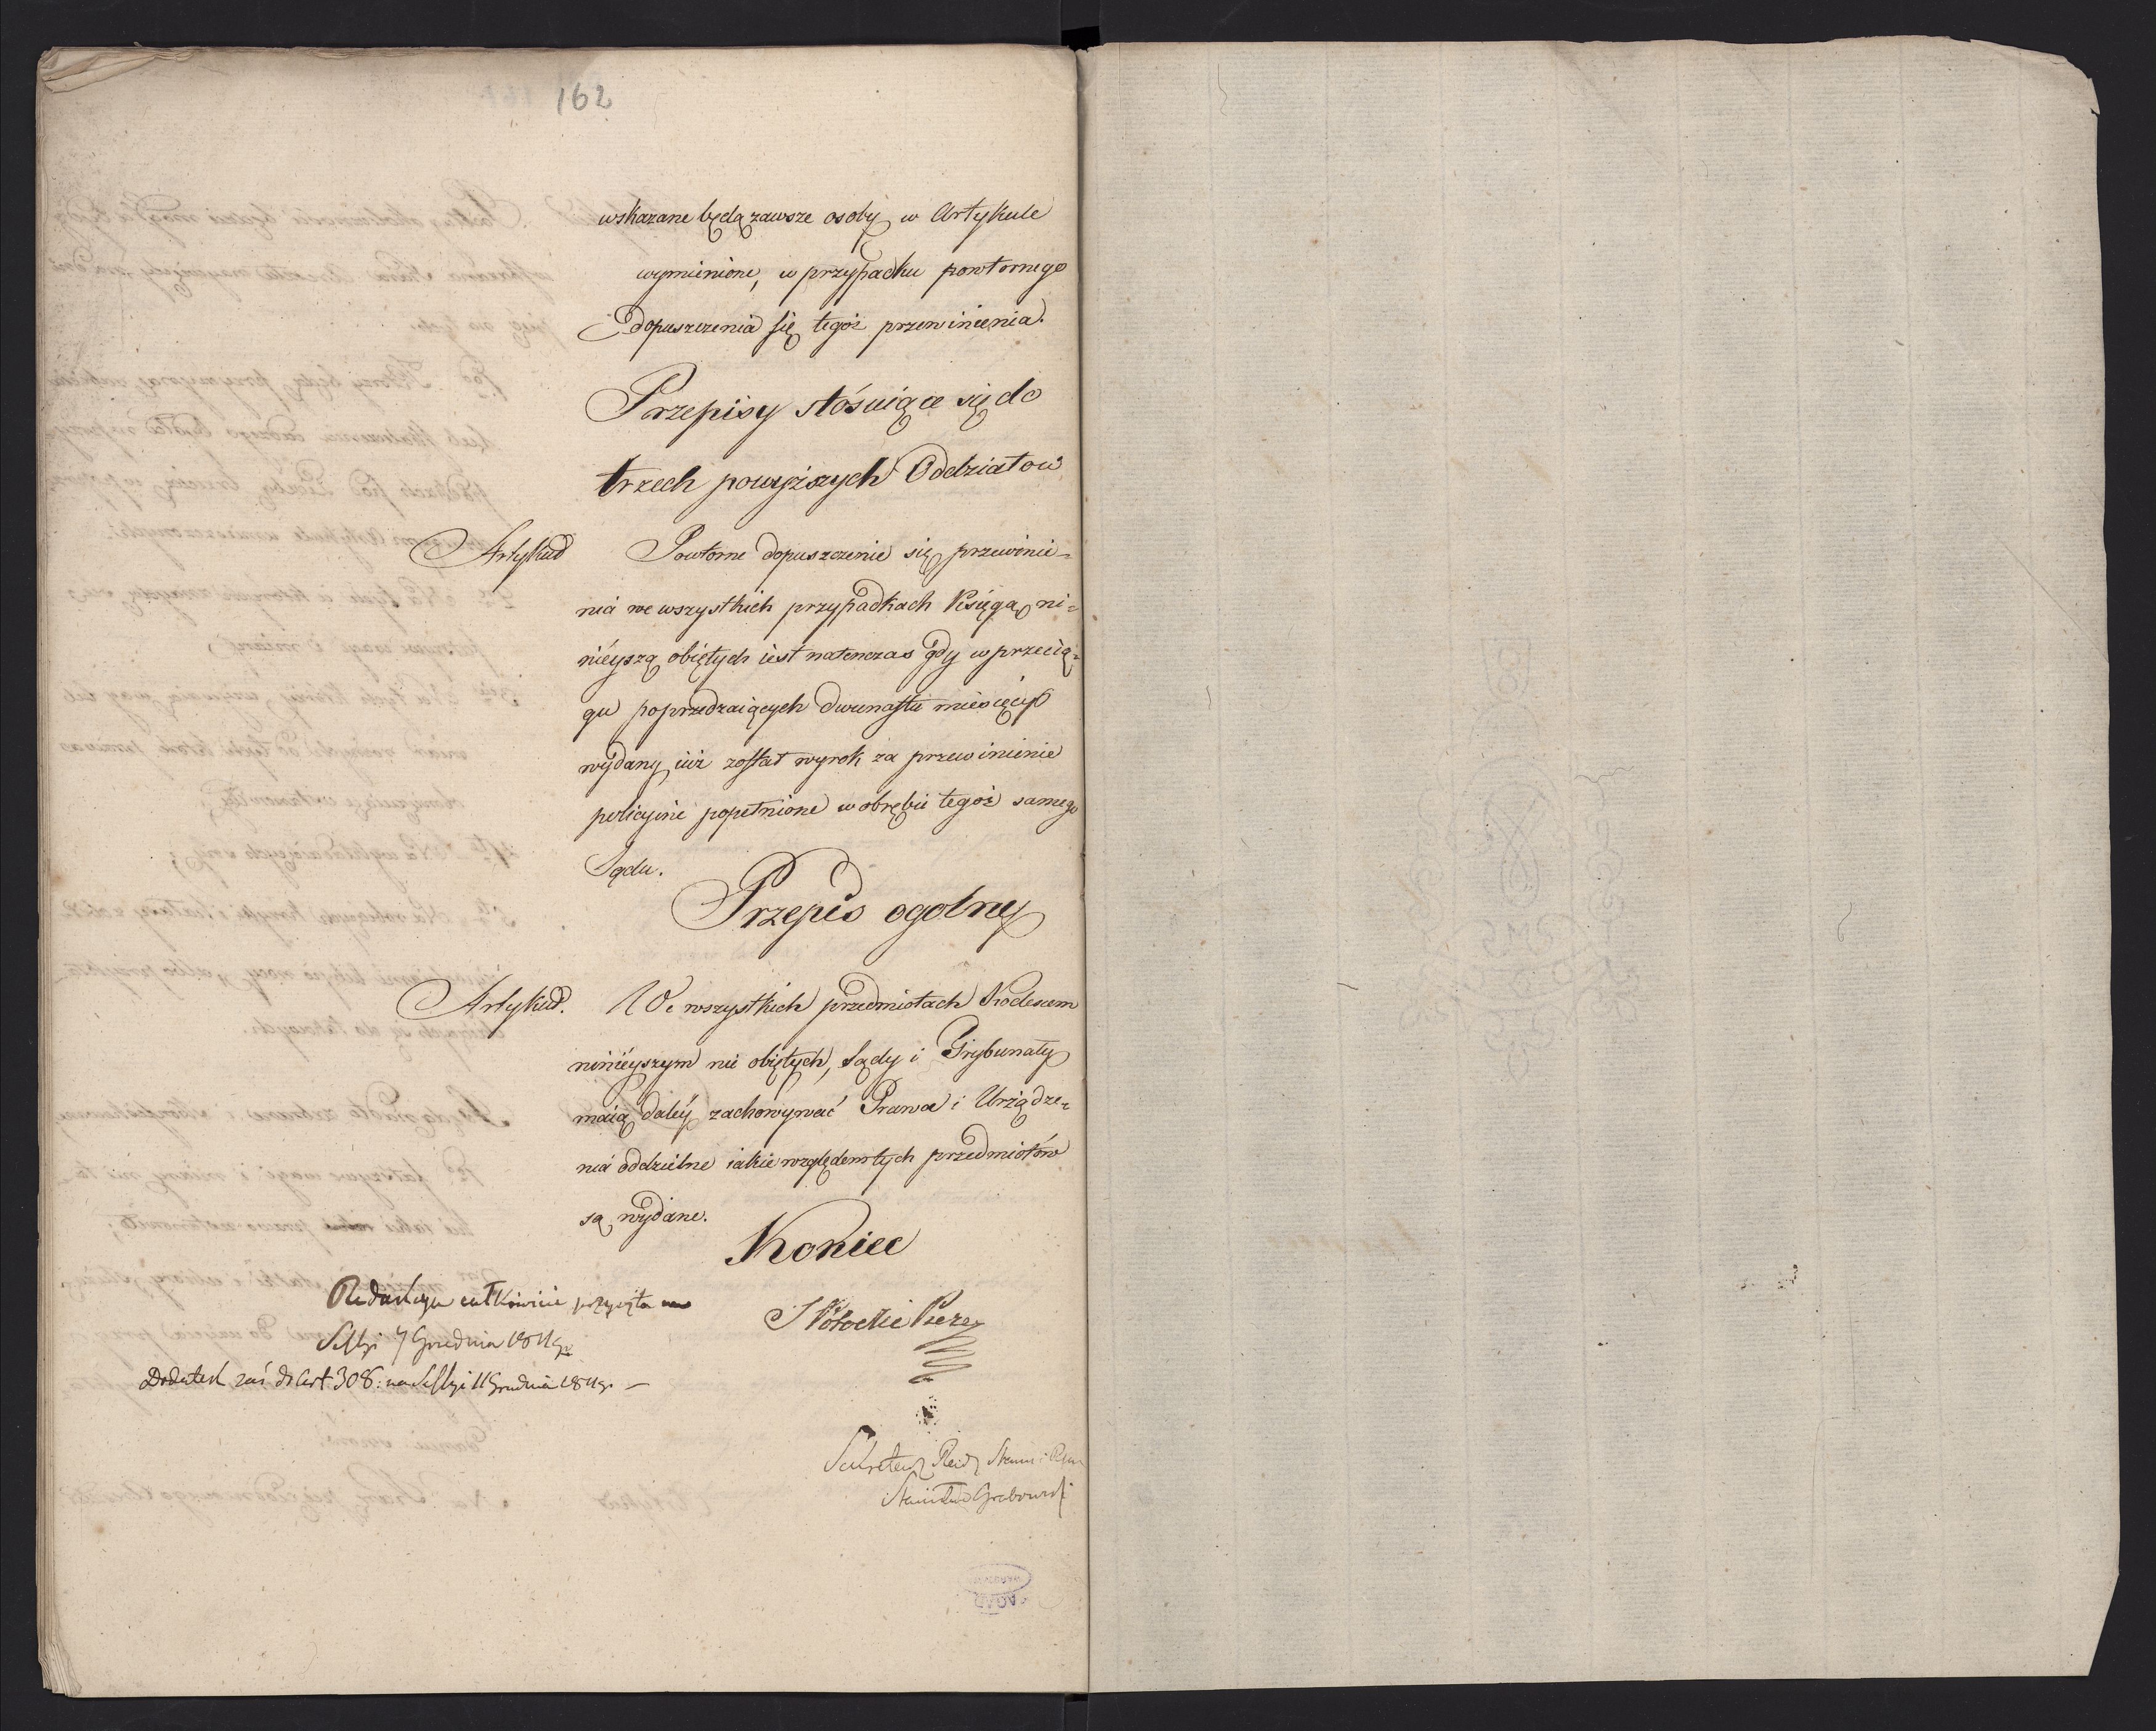 162
wskazane będą zawsze osoby w Artykule
wymienione, w przypadku powtornego
dopuszczenia się tegoż przewinienia.
Przepisy stósuiące się do
trzech powyższych Oddziałow
Artykuł Powtorne dopuszczenie się przewinie=
nia we wszystkich przypadkach Księgą ni=
nieyszą obiętych iest natenczas gdy w przecią=
gu poprzedzaiących dwunastu miesięcy
wydany iuż został wyrok za przewinienie
policyine popełnione w obrębie tegoż samego
Sądu.
Przepis ogolny
Artykuł. We wszystkich przedmiotach Kodexem
ninieyszym nie obiętych, Sądy i Trybunały
maią daley zachowywać Prawa i Urządze=
nia oddzielne iakie względem tych przedmiotów
są wydane.
Koniec
Redakcya całkowicie przyięta na
Sessyi 7 Grudnia 1811 r.
Dodatek zaś do Art. 308: na Sessyi 11 Grudnia 1811 r. —
Potocki Prezes
Sekretarz Rady Stanu i
Stanisław Grabowski
AGAD